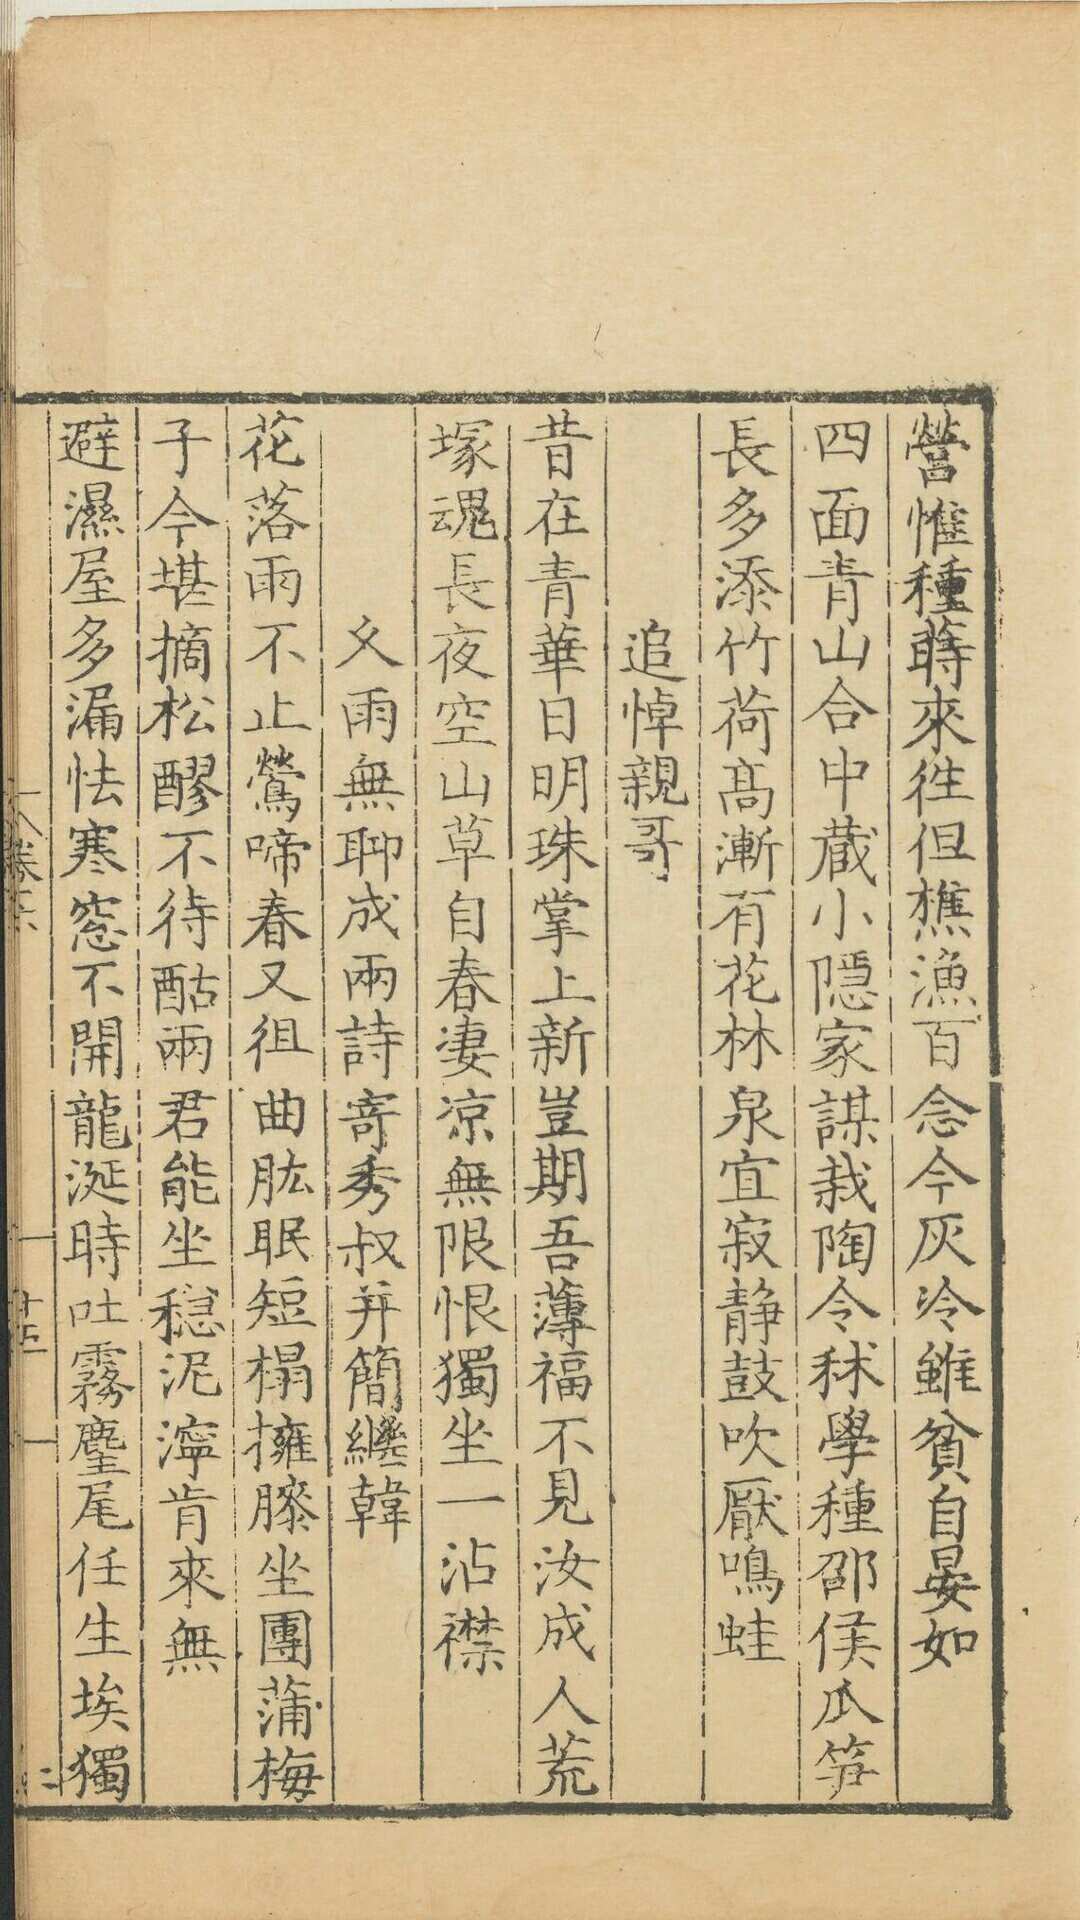 營惟種蒔來往但樵漁百念今灰冷雖貧自晏如
四面青山合中藏小隱家謀栽陶令秫學種邵侯瓜笋
長多添竹荷髙漸有花林泉宜寂静鼓吹厭鳴蛙
追悼親哥
昔在青華日明珠掌上新豈期吾薄福不見汝成人荒
塚魂長夜空山草自春凄凉無限恨獨坐一沾襟
乆雨無聊成兩詩寄秀叔并簡繼韓
花落雨不止鶯啼春又徂曲肱眠短榻擁膝坐團蒲梅
子今堪摘松醪不待酤兩君能坐穏泥濘肯來無
避濕屋多漏怯寒窓不開龍涎時吐霧麈尾任生埃獨